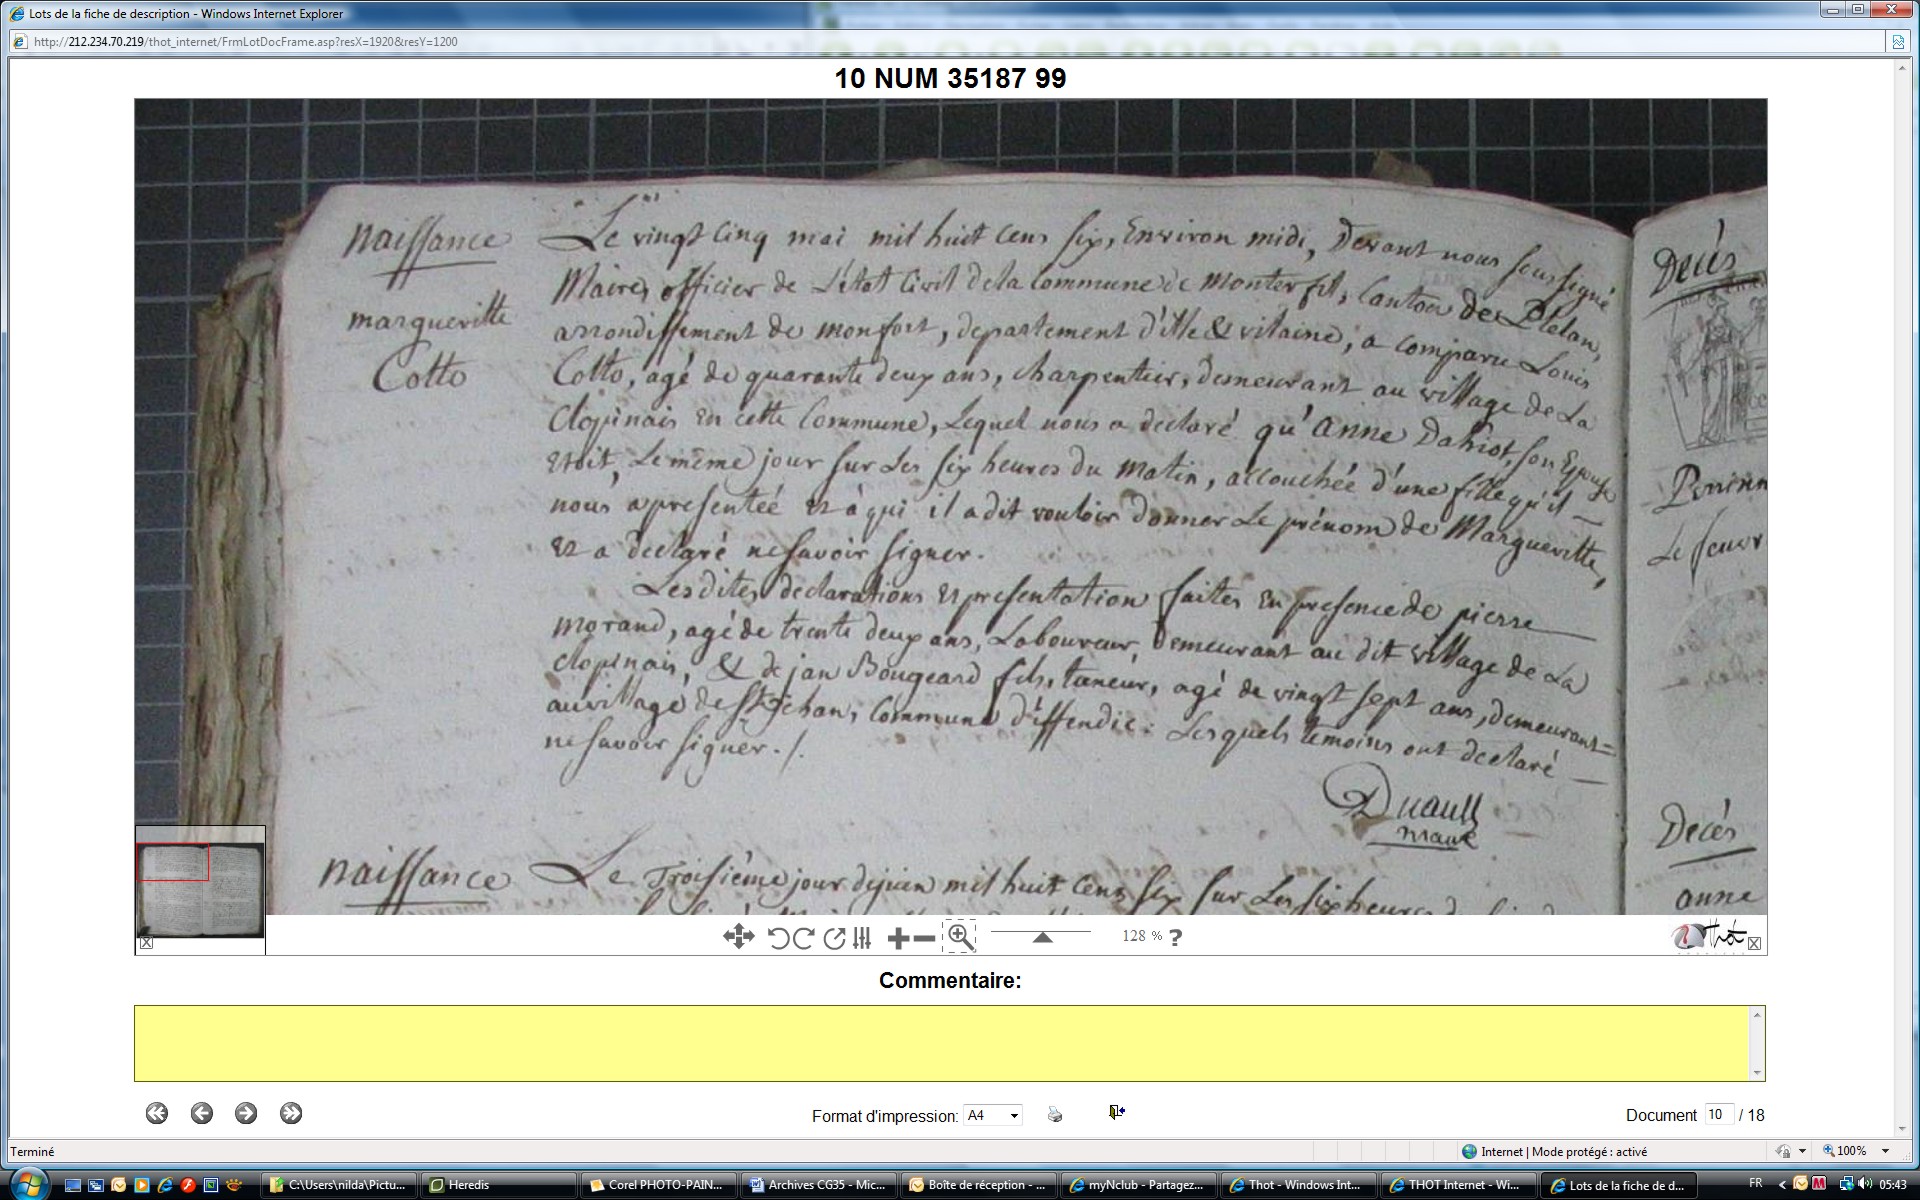 Lots de la fiche de description - Windows Internet Explorer
http://212.234.70.219/thot_internet/FrmLotDocFrame.asp?resX=1920&resY=1200
10 NUM 35187 99
naissance
margueritte
Cotto
Le vingt cinq mai mil huit cens six, Environ midi, Devant nous soussigné
Maire, officier de L'état Civil de la Commune de Monterfil, Canton de Plelan,
arrondissement de monfort, departement d'ille & vilaine, a comparu Louis
Cotto, agé de quarante deux ans, charpentier, demeurant au village de La
Clopinais en cette Commune, Lequel nous a declaré qu'Anne Dahiot, son Epouse
etoit, Le même jour sur Les six heures du matin, accouchée d'une fille qu'il
nous a presentée et à qui il a dit vouloir donner Le prénom de Margueritte,
et a declaré ne savoir signer.
Les dites declarations et presentation faites en presence de pierre
morand, agé de trente deux ans, Laboureur, demeurant au dit village de La
clopinais, & de jan Bougeard fils, taneur, agé de vingt sept ans, demeurant=
au village de St jehan, Commune d'iffendic: Lesquels temoins ont declaré
ne savoir signer./.
Duault
maire
naissance
Le Troisième jour de juin mil huit cens six sur Les six heures
Decès
Le feuvr
Decès
anne
128 % ?
Thot
Commentaire:
Format d'impression: A4
Document 10 / 18
Terminé
Internet | Mode protégé : activé
100%
C:\Users\nilda\Pictu...
Heredis
Corel PHOTO-PAIN...
Archives CG35 - Mic...
Boîte de réception - ...
myNclub - Partagez...
Thot - Windows Int...
THOT Internet - Wi...
Lots de la fiche de d...
FR
05:43